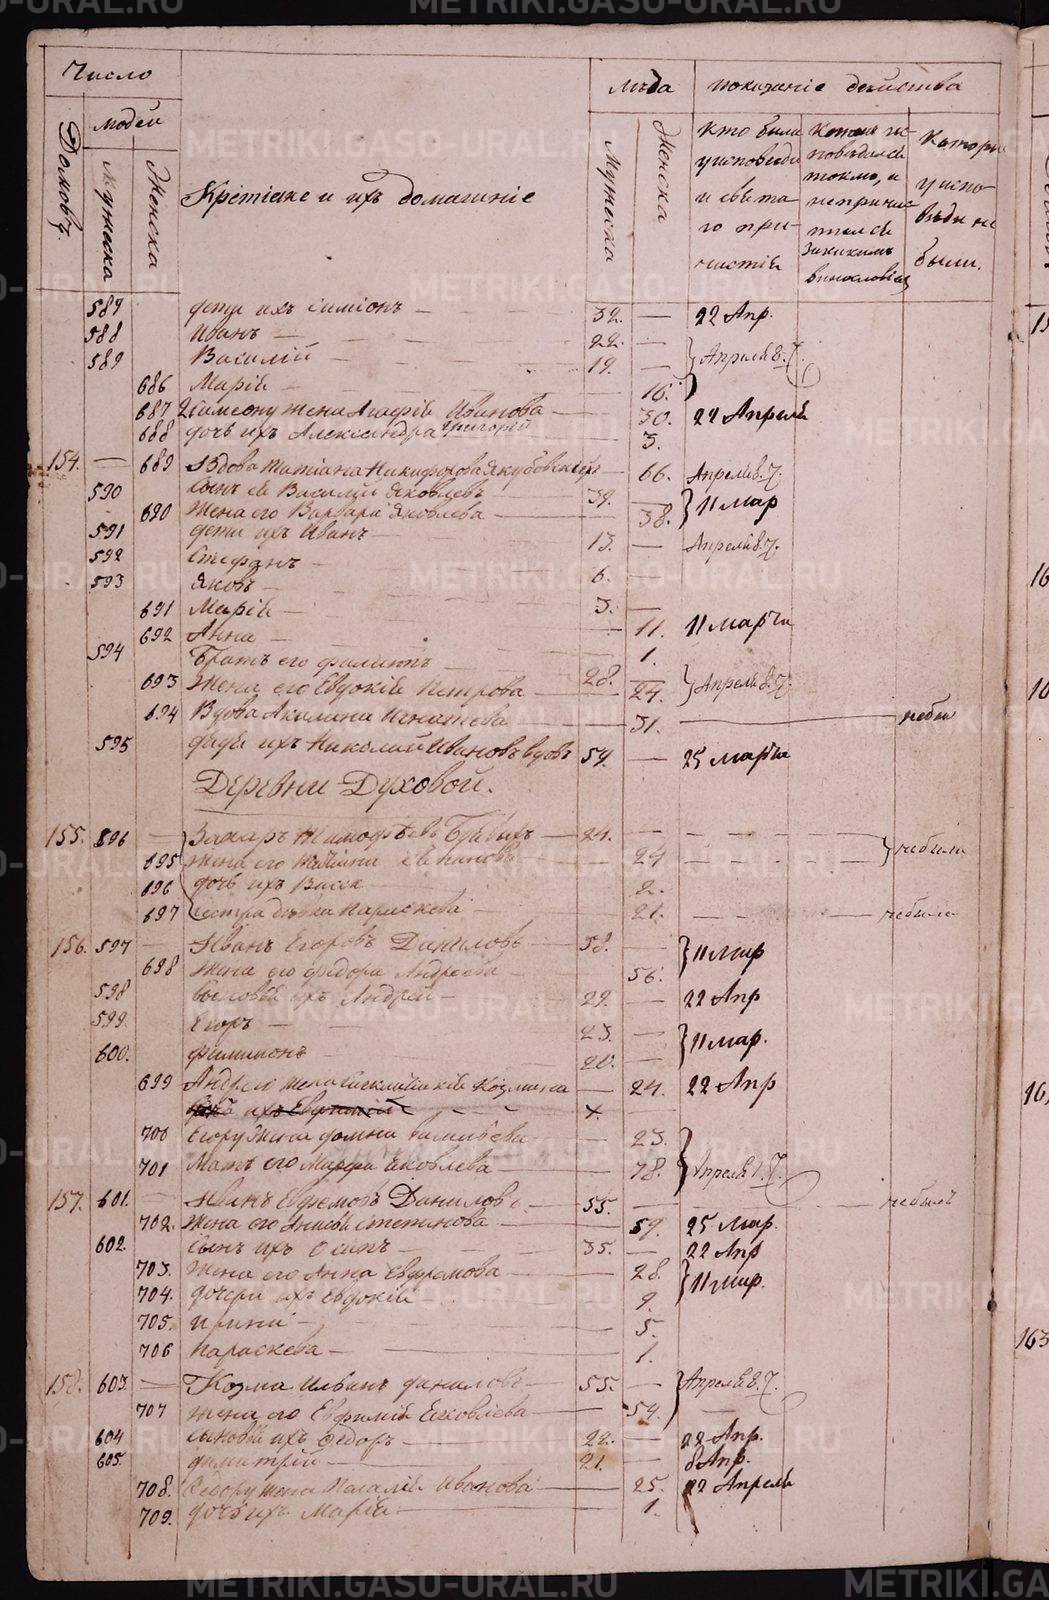 Число
Людей
Домовъ
Мужеска
Женска
Крестiяне и ихъ домашнiе
Лѣта
Мужеска
Женска
показанiе действа
кто были у исповеди и свята го при- частiя
Которые ис- поведалсѣ токмо, а непричас- тилсѣ закакимъ винословiем
Которые у испо- веди не были.
589 дети ихъ Симiонъ — 32. — 22 Апр.
588 Иванъ — 22. —
589 Василiй — 19. — Апреля 8. Ч.
686 Марiя — 16.
687 Симеону жена Агафiя Иванова — 30. 22 Апреля
688 дочь ихъ Александра Григорiй — 3.
154. — 689 Вдова Татiана Никифорова — 66. Апреля 8. Ч.
590 Сынъ ея Василiй Яковлевъ 39. — 11 Мар
690 Жена его Варвара Яковлева — 38.
591 дети ихъ Иванъ — 13. — Апреля 8. Ч.
592 Стефанъ — 6. —
593 Яковъ — 3. —
691 Марiя — 11. 11 Марта
692 Анна — 1.
594 Братъ его Филиппъ — 28. — Апреля 8. Ч.
693 Жена его Евдокiя Петрова — 24.
694 Вдова Акилина Игнатьева — 31. — небы
595 дядя ихъ Николай Ивановъ вдовъ 59. — 25 Марта
Деревни Духовой.
155. 896 — Захаръ Тимофѣевъ — 24. — небыли
695 жена его Татiана — 24
696 дочь ихъ — 2.
697 Сестра девка Параскева — 21. — небыла
156. 597 — Иванъ Егоровъ Даниловъ — 58. — 11 Мар
698 жена его Федора Андреева — 56.
598 Сыновья ихъ Андрей — 29. — 22 Апр
599. Егоръ — 23. — 11 Мар.
600. Филимонъ 20. —
699 Андрею жена Козмина — 24. 22 Апр
ихъ
700 Егору жена Домна — 23.
701 Мать его Марфа Яковлева — 78. Апреля 1. Ч.
157. 601. — Иванъ Ефремовъ Даниловъ. 55. — небылъ
702. жена его Анисiя Степанова — 59. 25 Мар.
602. Сынъ ихъ Осипъ — 35. — 22 Апр
703. жена его Анна Ефремова — 28. 11 Мар.
704. дочери ихъ Евдокiя 9.
705. Ирина — 5.
706 Параскева — 1.
158. 603. — Козма Ильинъ Даниловъ — 55. — Апреля 8. Ч.
707 жена его Евфимiя Яковлева — 54.
604 Сыновья ихъ Федоръ — 22. — 22 Апр.
605. Димитрiй — 21. — 8 Апр.
708. Федору жена Пелагiя Иванова — 25. 22 Апреля
709. дочь ихъ Марiя — 1.
METRIKI.GASO-URAL.RU